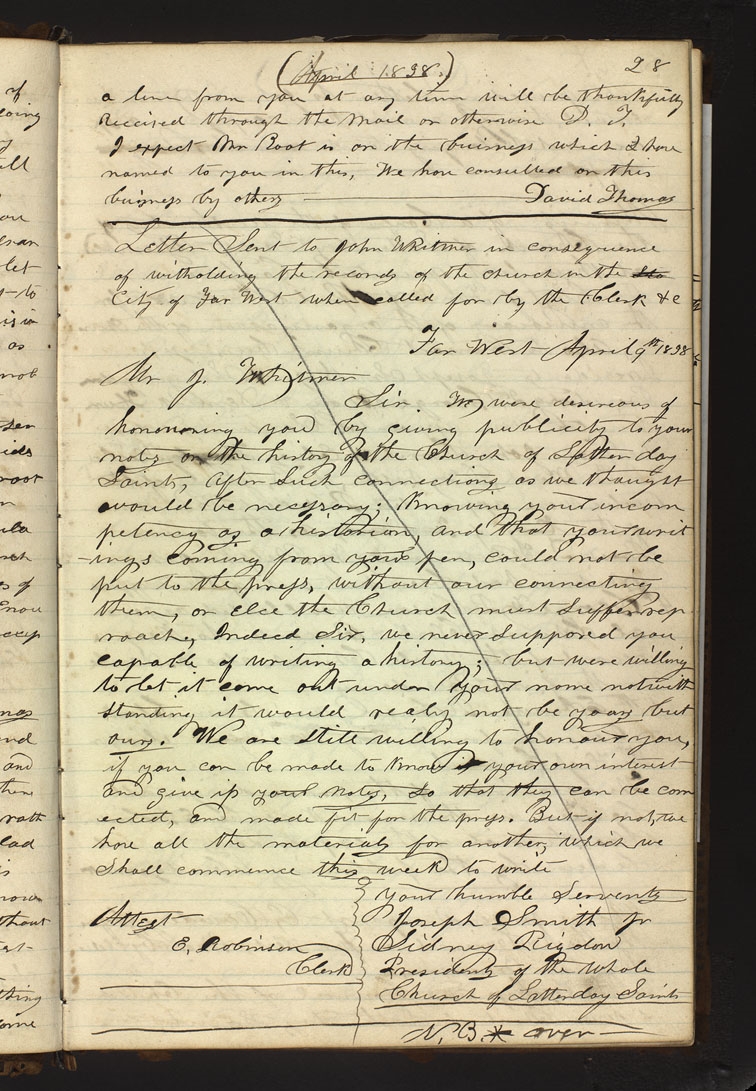 (April 1838.)
28
a line from you at any time will be thankfully
Received through the mail or otherwise D. T.
I expect Mr Root is on the buisness which I have
named to you in this, We have consulted on this
buisness by others David Thomas
Letter Sent to John Whitmer in consequence
of witholding the records of the church in the
City of Far West when called for by the Clerk &c
Far West April 9th 1838
Mr J. Whitmer
Sir. We were desireous of
honouring you by giving publicity to your
notes on the history of the Church of Latter day
Saints, after such connections as we thought
would be necessary; Knowing your incom
petency as a historian, and that your writ
-ings coming from your pen, could not be
put to the press, without our connecting
them, or elce the Church must suffer rep
roach; Indeed Sir, we never supposed you
capable of writing a history; but were willing
to let it come out under your name notwith
standing it would realy not be yours but
ours. We are still willing to honour you,
if you can be made to know your own interest
and give up your notes, so that they can be corr
ected, and made fit for the press. But if not, we
have all the materials for another, which we
shall commence this week to write
your humble Servents
Attest
Joseph Smith Jr
E. Robinson
Sidney Rigdon
Clerk
Presidents of the whole
Church of Latterday Saints
N.B. * over